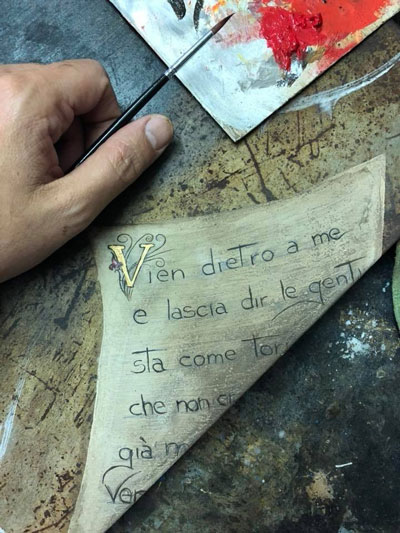 Vien dietro a me
e lascia dir le genti
sta come tor
che non
già m
Ver